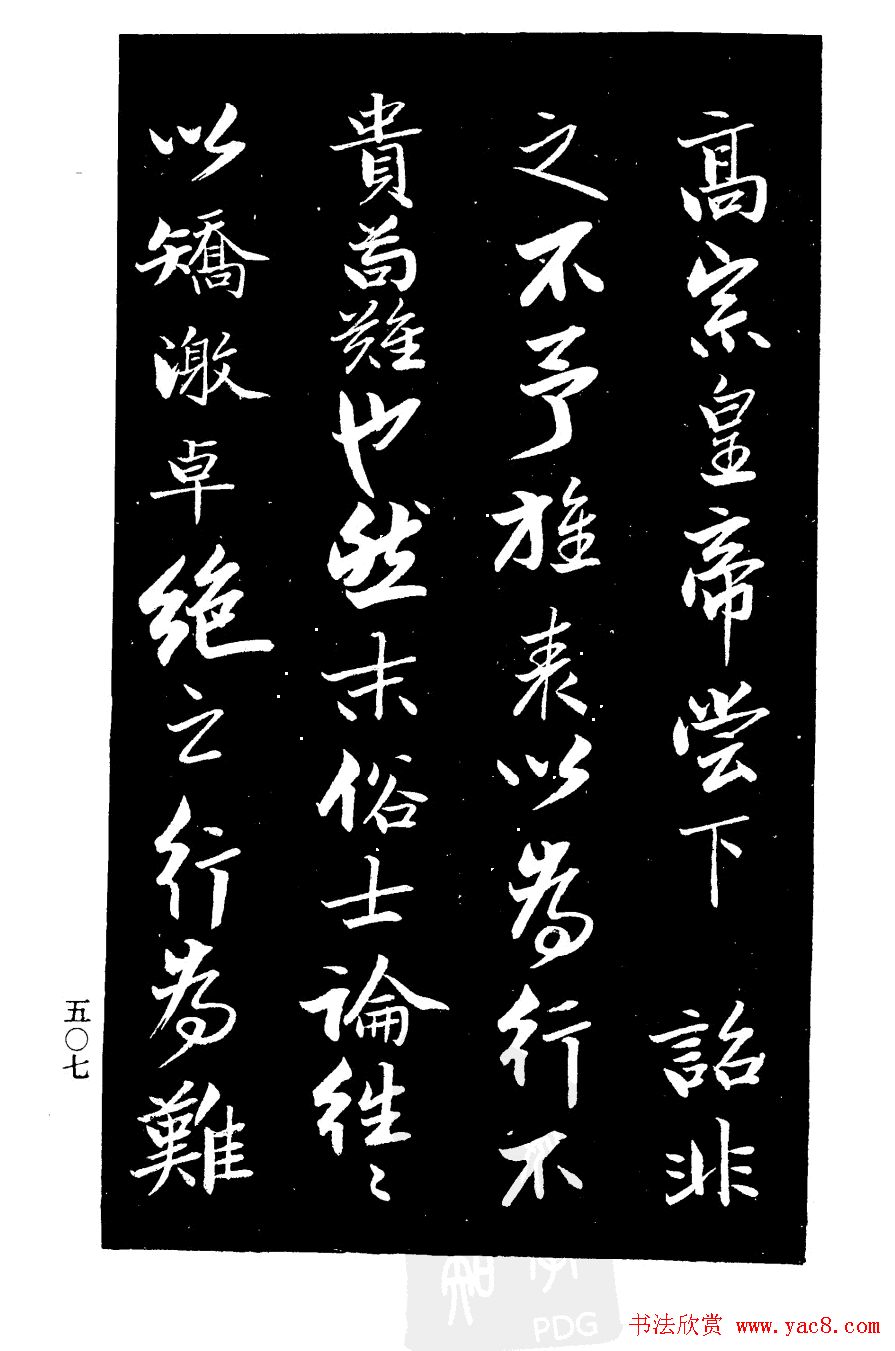 高宗皇帝嘗下 詔非
之不予旌表以為行不
貴苟難也然末俗士論往〻
以矯激卓絕之行為難
五〇七
PDG
书法欣赏 www.yac8.com